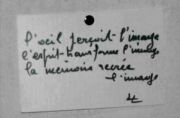 l'oeil perçoit l'image
l'esprit transforme l'image
la mémoire recrée
l'image